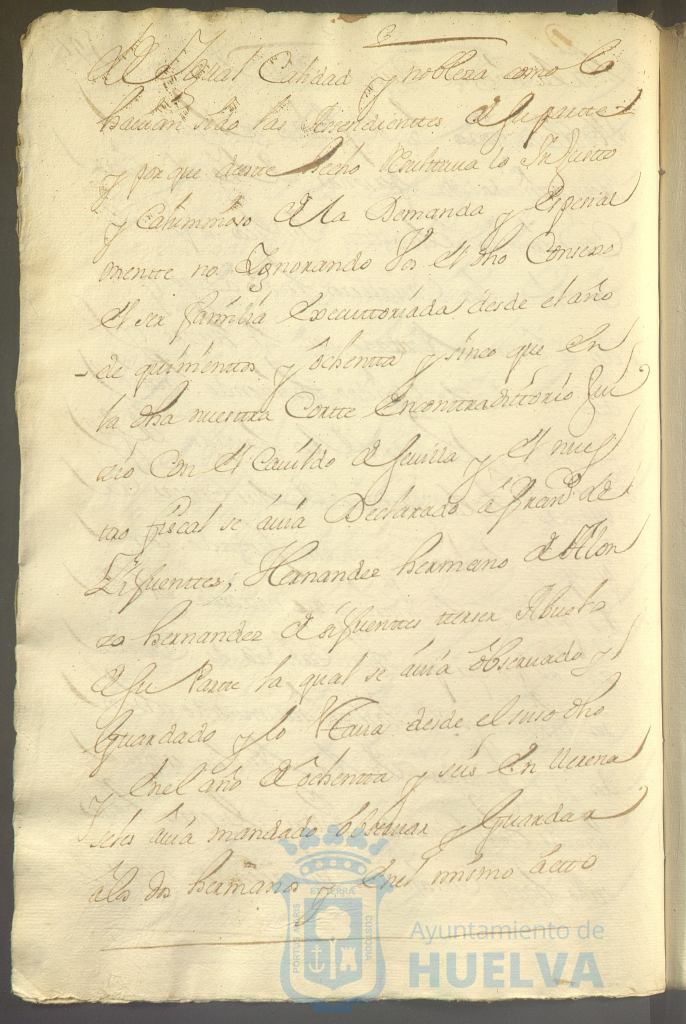 de Igual Calidad y nobleza como lo
hacian todo los Asendientes de su parte
y por que deeste hecho Resultaua lo Injusto
y Calumnioso de la Demanda y Especial
mentte no Ignorando Vos el dho Consexo
el ser familia Executtoriada desde el año
de quinienttos y ôchentta y sinco que en
la dha nuestra Cortte encontraditorio Jui
cio Con el Cauildo de seuilla y el nues
tro fiscal se áuia Declarado á Frando de
Sifuenttes, Hernandez hermano de Alon
zo hernandez de sifuentes terser Abuelo
de su Parte la qual se áuia ôbseruado y
Guardado y lo estaua desde el suso dho
y enel año de ôchentta y seis en Uerena
seles áuia mandado ôbseruar y Guardar
álos dos hermanos y enel mismo ácto
PORTUS MARIS
ET TERRÆ
CUSTODIA
Ayuntamiento de
HUELVA